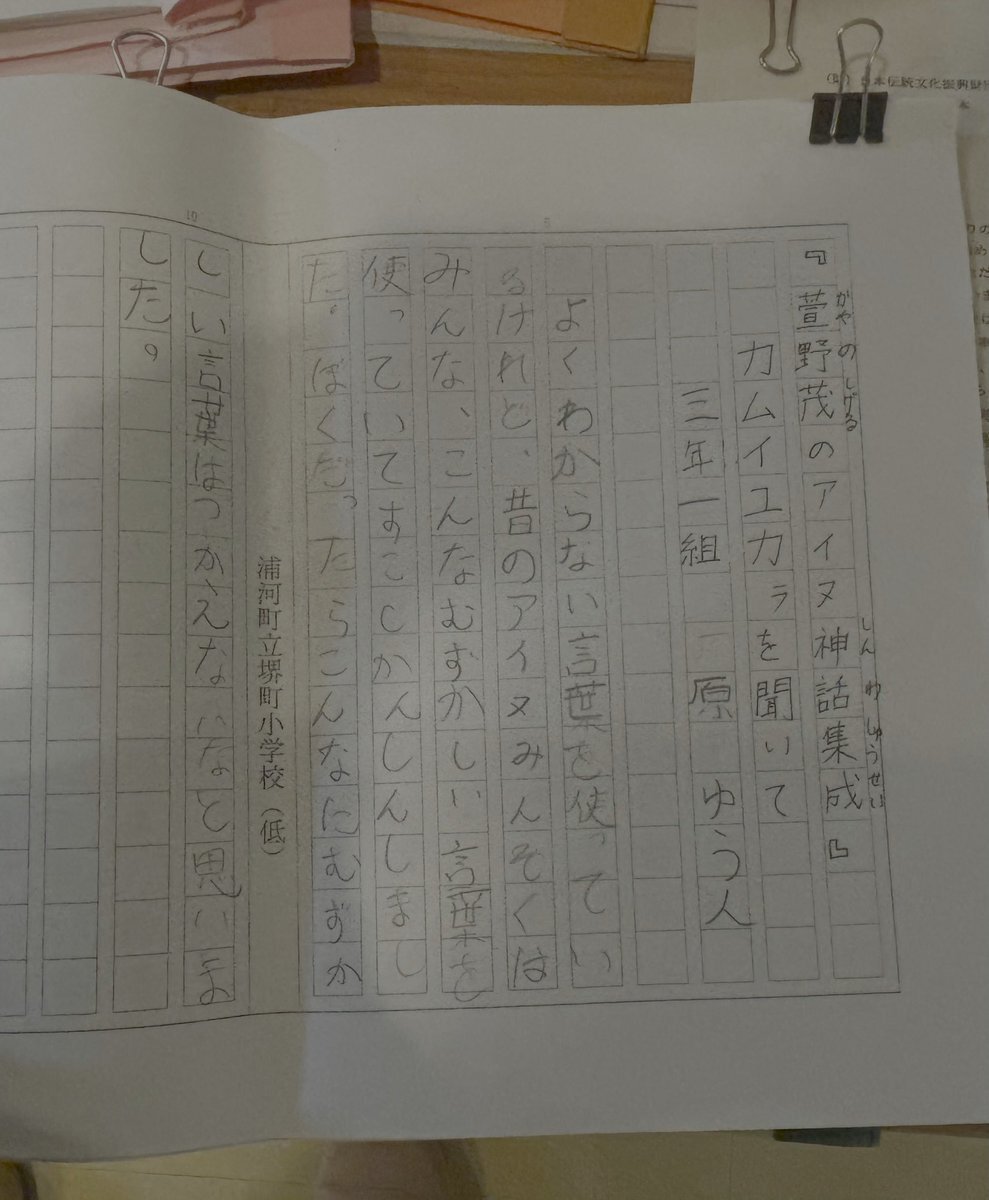 『萱野茂のアイヌ神話集成』
がやの しげる しん わ しゅうせい
カムイユカㇻを聞いて
三年一組 原 ゆう人
よくわからない言葉を使ってい
るけれど、昔のアイヌみんぞくは
みんな、こんなむずかしい言葉を
使っていてすこしかんしんしまし
た。ぼくだったらこんなにむずか
しい言葉はつかえないなと思いま
した。
浦河町立堺町小学校(低)
5
10
日本伝統文化振興財